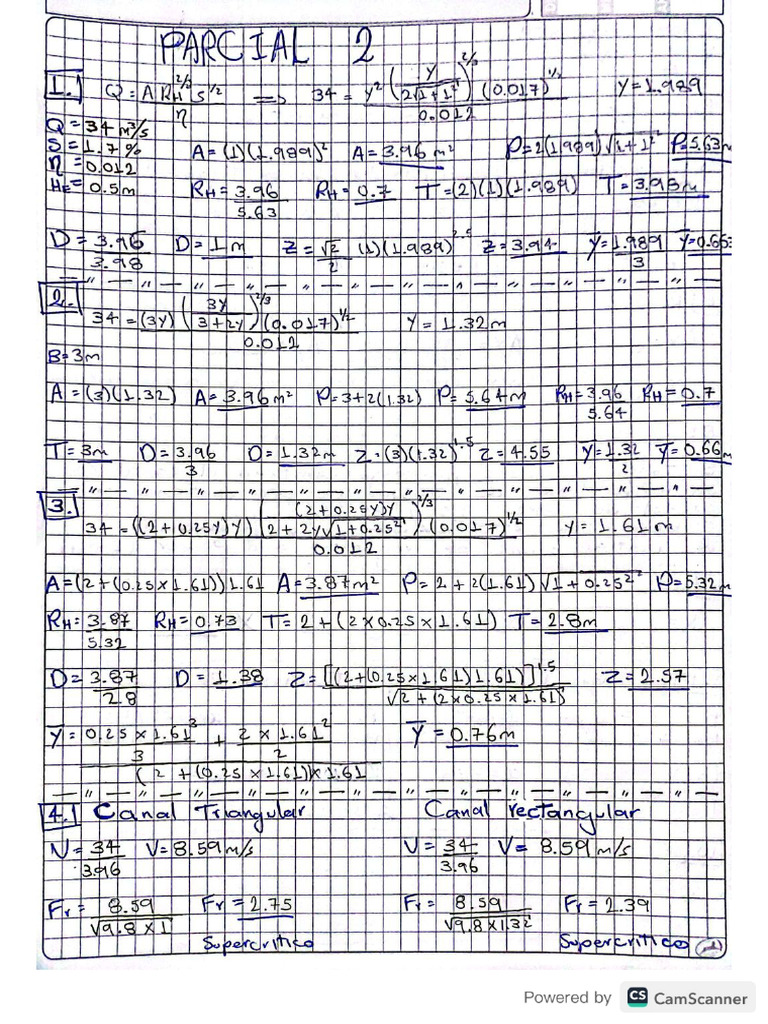 PARCIAL 2
1. Q = A RH^2/3 S^1/2 / η => 34 = y² (y / 2√1+1²)^2/3 (0.017)^1/2 / 0.012 y = 1.989
Q = 34 m³/s
S = 1.7% A = (1)(1.989)² A = 3.96 m² P = 2(1.989)√1+1² P = 5.63m
η = 0.012
HE = 0.5m RH = 3.96 / 5.63 RH = 0.7 T = (2)(1)(1.989) T = 3.98m
D = 3.96 / 3.98 D = 1m Z = √2 / 2 (1)(1.989)^2.5 Z = 3.94 ȳ = 1.989 / 3 ȳ = 0.663
2. 34 = (3y) (3y / 3+2y)^2/3 (0.017)^1/2 / 0.012 y = 1.32m
B = 3m
A = (3)(1.32) A = 3.96 m² P = 3+2(1.32) P = 5.64m RH = 3.96 / 5.64 RH = 0.7
T = 3m D = 3.96 / 3 D = 1.32m Z = (3)(1.32)^1.5 Z = 4.55 ȳ = 1.32 / 2 ȳ = 0.66m
3. 34 = ((2+0.25y)y) ((2+0.25y)y / 2+2y√1+0.25²)^2/3 (0.017)^1/2 / 0.012 y = 1.61m
A = (2+(0.25×1.61))1.61 A = 3.87m² P = 2+2(1.61)√1+0.25² P = 5.32m
RH = 3.87 / 5.32 RH = 0.73 T = 2+(2×0.25×1.61) T = 2.8m
D = 3.87 / 2.8 D = 1.38 Z = [(2+(0.25×1.61)1.61)]^1.5 / √2+(2×0.25×1.61) Z = 2.57
ȳ = 0.25×1.61³ / 3 + 2×1.61² / 2 / (2+(0.25×1.61)×1.61 ȳ = 0.76m
4. Canal Triangular Canal rectangular
V = 34 / 3.96 V = 8.59 m/s V = 34 / 3.96 V = 8.59 m/s
Fr = 8.59 / √9.8×1 Fr = 2.75 Fr = 8.59 / √9.8×1.32 Fr = 2.39
Supercritico Supercritico
Powered by CS CamScanner